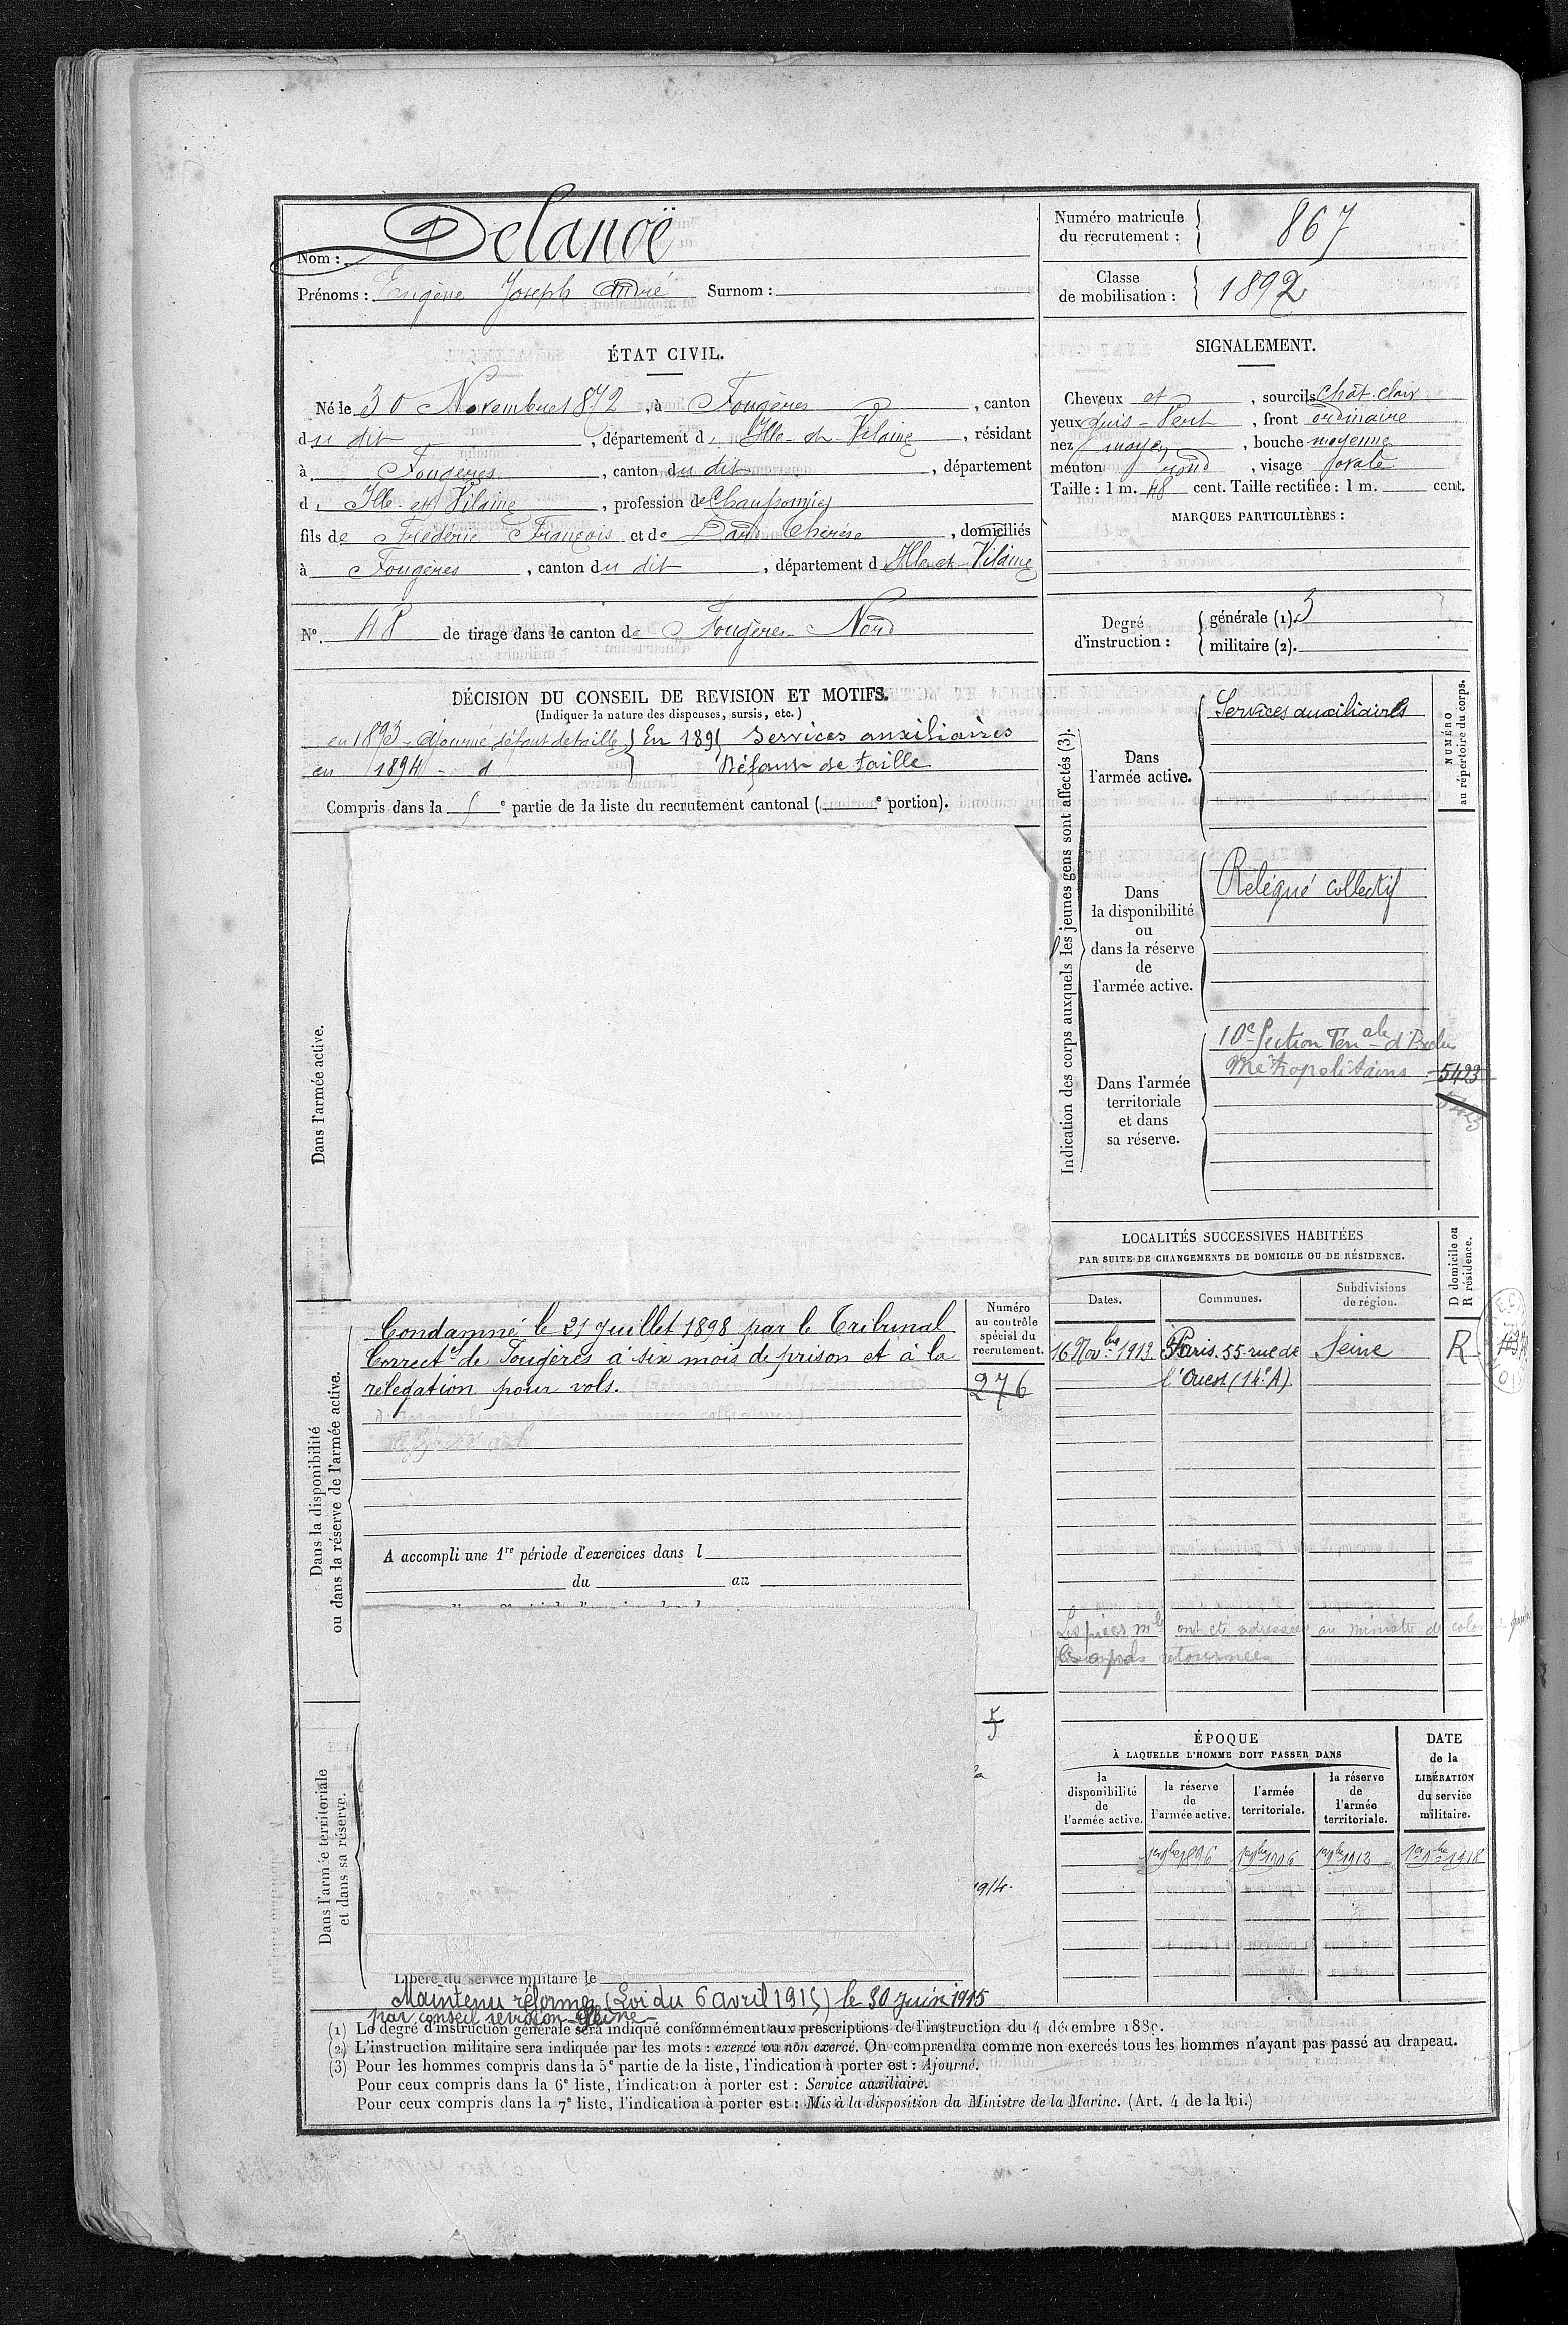 Nom : Delanoë
Prénoms : Eugène Joseph André Surnom :
Numéro matricule du recrutement : 867
Classe de mobilisation : 1892
ÉTAT CIVIL.
Né le 30 Novembre 1872, à Fougères, canton
du dit, département d'Ille-et-Vilaine, résidant
à Fougères, canton du dit, département
d'Ille-et-Vilaine, profession de
fils de Frédéric François et de Thérèse, domiciliés
à Fougères, canton du dit, département d'Ille-et-Vilaine
N° 48 de tirage dans le canton de Fougères Nord
SIGNALEMENT.
Cheveux et, sourcils chât. clair
yeux gris-vert, front ordinaire
nez moyen, bouche moyenne
menton rond, visage ovale
Taille : 1 m. 48 cent. Taille rectifiée : 1 m. cent.
MARQUES PARTICULIÈRES :
Degré d'instruction : générale (1). 3
militaire (2).
DÉCISION DU CONSEIL DE REVISION ET MOTIFS.
(Indiquer la nature des dispenses, sursis, etc.)
en 1893 - ajourné défaut de taille } En 1895 Services auxiliaires
en 1894 - d } Défaut de taille
Compris dans la 5e partie de la liste du recrutement cantonal ( e portion).
Indication des corps auxquels les jeunes gens sont affectés (3).
NUMÉRO au répertoire du corps.
Dans l'armée active.
Services auxiliaires
Dans la disponibilité ou dans la réserve de l'armée active.
Relégué collectif
Dans l'armée territoriale et dans sa réserve.
10e Section Terr ale d'Exclus
Métropolitains 5423
5423
Dans l'armée active.
LOCALITÉS SUCCESSIVES HABITÉES
PAR SUITE DE CHANGEMENTS DE DOMICILE OU DE RÉSIDENCE.
D domicile ou R résidence.
Dates. Communes. Subdivisions de région.
16 Nov bre 1913 Paris 55 rue de Seine R
l'Ouest (14e A)
Dans la disponibilité ou dans la réserve de l'armée active.
Condamné le 21 Juillet 1898 par le Tribunal
Correct el de Fougères à six mois de prison et à la
relégation pour vols.
Numéro au contrôle spécial du recrutement.
276
A accompli une 1re période d'exercices dans l
du au
Les pièces m les ont été adressées au ministre de
retournées
Dans l'armée territoriale et dans sa réserve.
1914.
ÉPOQUE
À LAQUELLE L'HOMME DOIT PASSER DANS
la disponibilité de l'armée active.
la réserve de l'armée active.
l'armée territoriale.
la réserve de l'armée territoriale.
DATE de la LIBÉRATION du service militaire.
1er 9bre 1896 1er 9bre 1906 1er 9bre 1912 1er 9bre 1918
Libéré du service militaire le
Maintenu réformé (Loi du 6 avril 1915) le 30 Juin 1915
par conseil revision - Seine -
(1) Le degré d'instruction générale sera indiqué conformément aux prescriptions de l'instruction du 4 décembre 1889.
(2) L'instruction militaire sera indiquée par les mots : exercé ou non exercé. On comprendra comme non exercés tous les hommes n'ayant pas passé au drapeau.
(3) Pour les hommes compris dans la 5e partie de la liste, l'indication à porter est : Ajourné.
Pour ceux compris dans la 6e liste, l'indication à porter est : Service auxiliaire.
Pour ceux compris dans la 7e liste, l'indication à porter est : Mis à la disposition du Ministre de la Marine. (Art. 4 de la loi.)